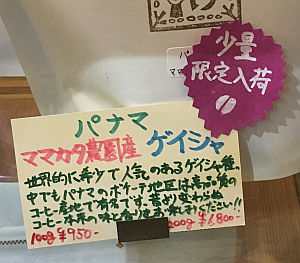 少量
限定入荷
パナマ
ママカタ農園産 ゲイシャ
世界的に希少で人気のあるゲイシャ種。
中でもパナマのボケテ地区は高品質の
コーヒー産地で有名です。昔より変わらぬ
コーヒー本来の味と香りをお楽しみください!!
100g ¥950- 200g ¥6,800-